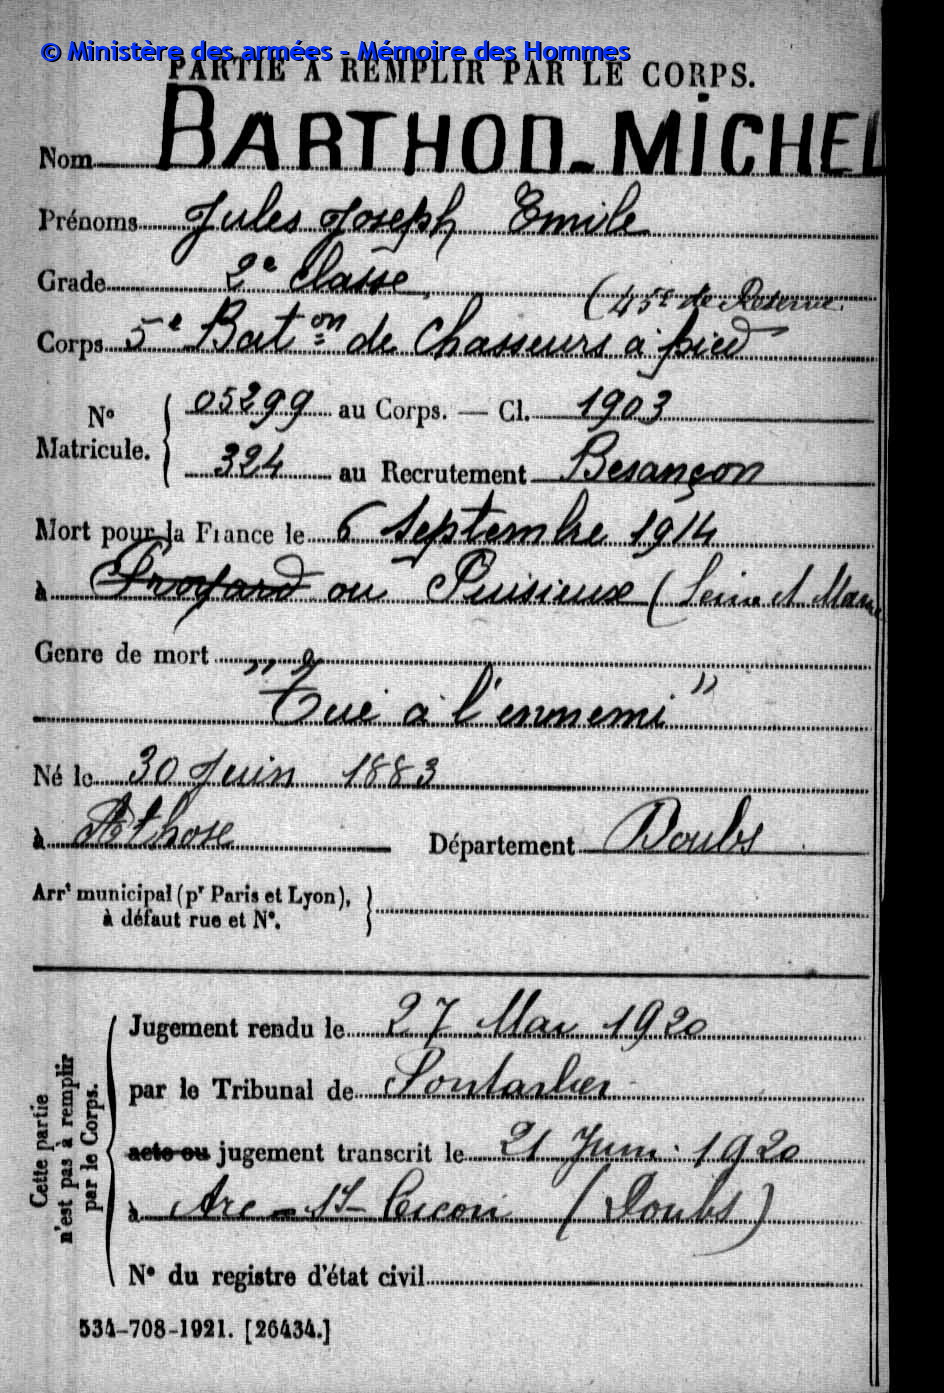 © Ministère des armées - Mémoire des Hommes
PARTIE À REMPLIR PAR LE CORPS.
Nom BARTHOD-MICHEL
Prénoms Jules Joseph Emile
Grade 2e Classe
(45e de Réserve
Corps 5e Baton de Chasseurs à pied
No Matricule. { 05299 au Corps. — Cl. 1903
324 au Recrutement Besançon
Mort pour la France le 6 Septembre 1914
à Proyard ou Puisieux (Seine et Marne
Genre de mort
"Tué à l'ennemi"
Né le 30 Juin 1883
à Athose Département Doubs
Arrt municipal (pr Paris et Lyon),
à défaut rue et No. }
Cette partie
n'est pas à remplir
par le Corps.
Jugement rendu le 27 Mai 1920
par le Tribunal de Pontarlier
acte ou jugement transcrit le 21 Juin 1920
à Arc-ss-Cicon (Doubs)
No du registre d'état civil
534-708-1921. [26434.]